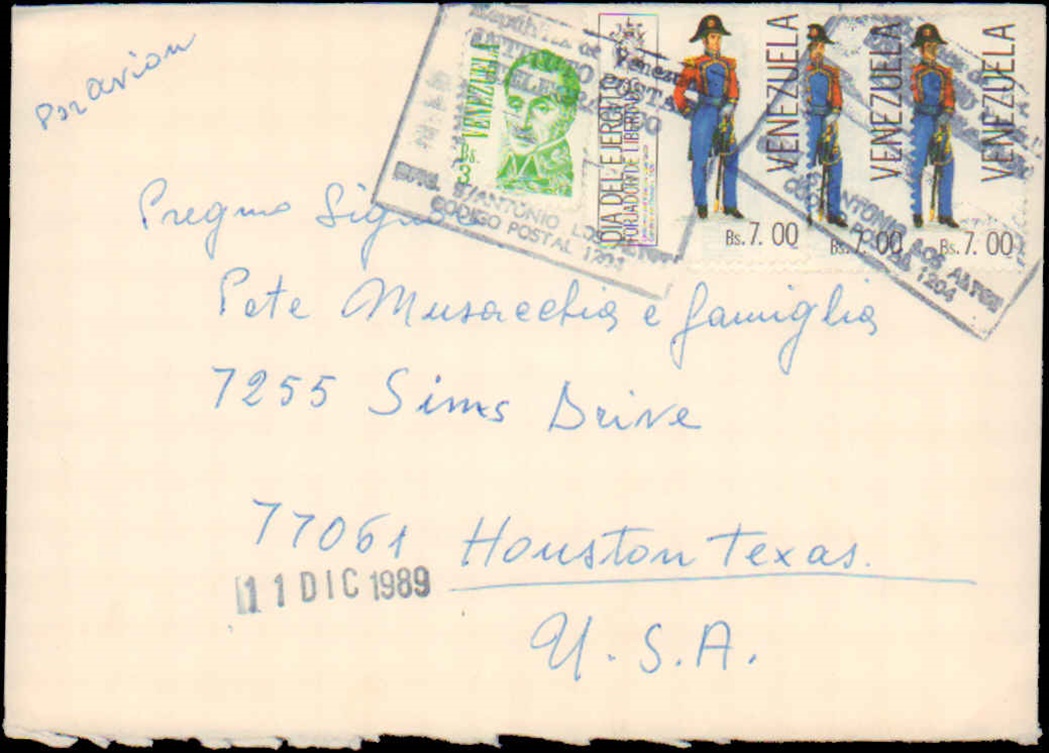 Por avion
VENEZUELA
Bs. 3
República de Venezuela
INSTITUTO POSTAL
TELEGRAFICO
CODIGO POSTAL 1204
DIA DEL EJERCITO
FORJADOR DE LIBERTADES
VENEZUELA
Bs. 7.00
VENEZUELA
Bs. 7.00
VENEZUELA
Bs. 7.00
S/ANTONIO LOS ALTOS
CODIGO POSTAL 1204
Pregmo Signor
Pete Musacchia e famiglia
7255 Sims Drive
77061 Houston Texas.
11 DIC 1989
U.S.A.